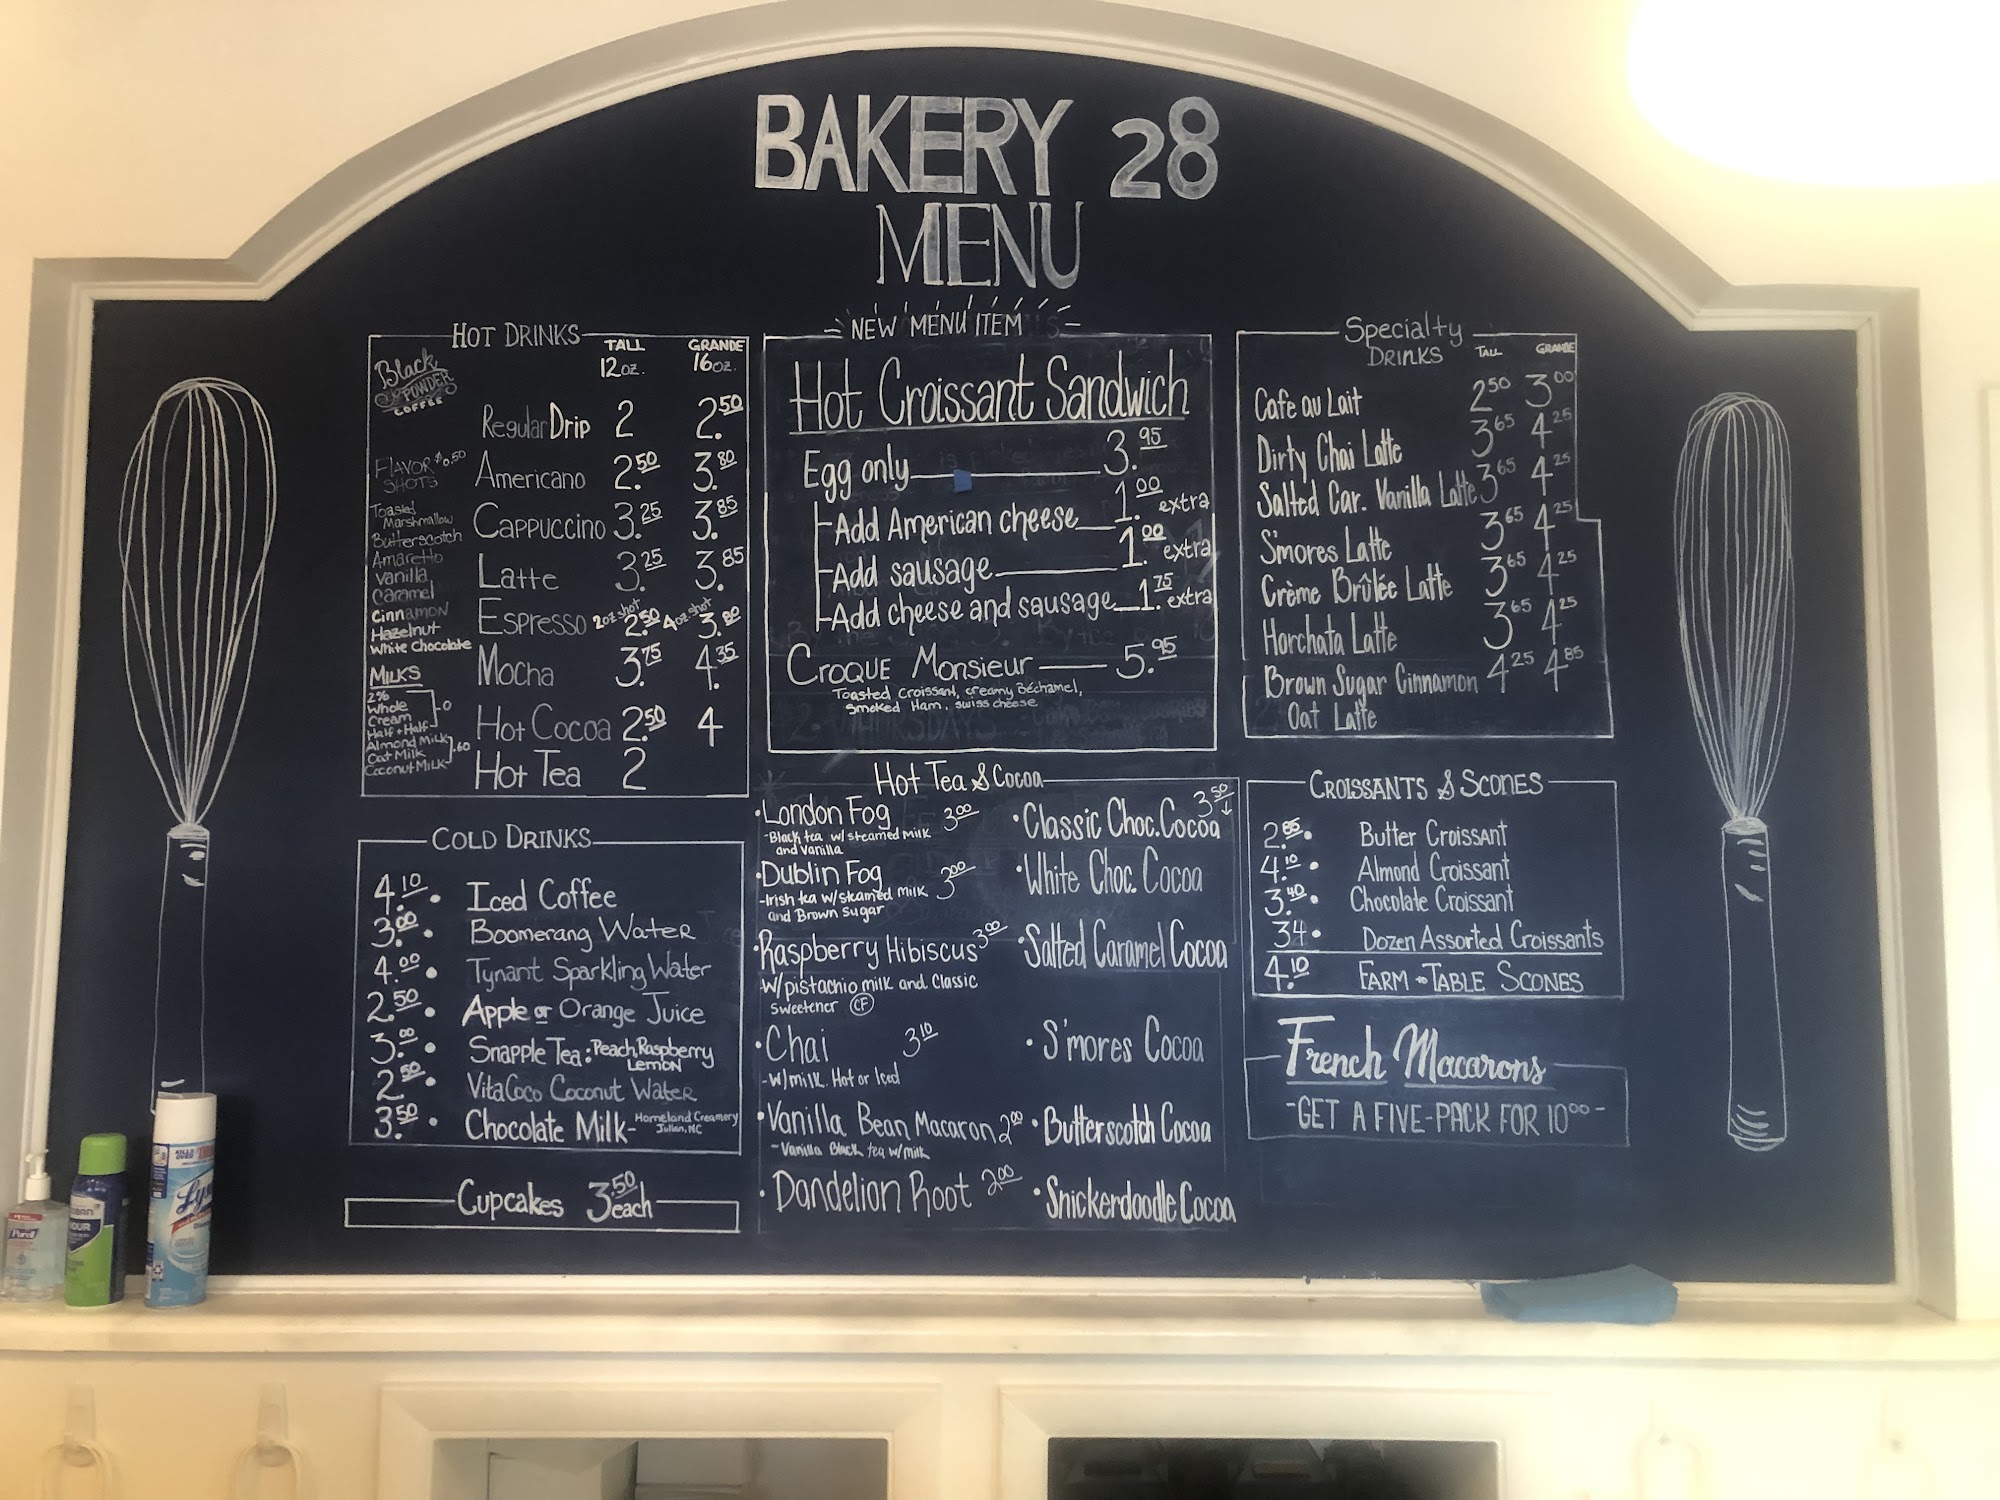 BAKERY 28
MENU
HOT DRINKS
TALL GRANDE
12oz. 16oz.
Black
POWDER
COFFEE
Regular Drip 2 2.50
Americano 2.50 3.80
Cappuccino 3.25 3.85
Latte 3.25 3.85
Espresso 2oz shot 2.50 4oz shot 3.80
Mocha 3.75 4.35
Hot Cocoa 2.50 4
Hot Tea 2
FLAVOR $0.50
SHOTS
Toasted
Marshmallow
Butterscotch
Amaretto
Vanilla
Caramel
Cinnamon
Hazelnut
White Chocolate
MILKS
2%
Whole
Cream
Half + Half
0
Almond Milk
Oat Milk
Coconut Milk
.60
COLD DRINKS
4.10 • Iced Coffee
3.00 • Boomerang Water
4.00 • Tynant Sparkling Water
2.50 • Apple or Orange Juice
3.00 • Snapple Tea: Peach, Raspberry
Lemon
2.50 • VitaCoco Coconut Water
3.50 • Chocolate Milk - Homeland Creamery
Julian, NC
Cupcakes 3.50 each
NEW MENU ITEM
Hot Croissant Sandwich
Egg only 3.95
Add American cheese 1.00 extra
Add sausage 1.00 extra
Add cheese and sausage 1.75 extra
Croque Monsieur 5.95
Toasted croissant, creamy Béchamel,
Smoked Ham, swiss cheese
Hot Tea & Cocoa
• London Fog 3.00
- Black tea w/steamed milk
and vanilla
• Dublin Fog 3.00
- Irish tea w/steamed milk
and Brown Sugar
• Raspberry Hibiscus 3.00
w/pistachio milk and classic
sweetener CF
• Chai 3.10
- w/milk. Hot or Iced
• Vanilla Bean Macaron 2.00
- Vanilla Black tea w/milk
• Dandelion Root 2.00
• Classic Choc. Cocoa 3.50 ↓
• White Choc. Cocoa
• Salted Caramel Cocoa
• S'mores Cocoa
• Butterscotch Cocoa
• Snickerdoodle Cocoa
Specialty
DRINKS TALL GRANDE
Cafe au Lait 2.50 3.00
Dirty Chai Latte 3.65 4.25
Salted Car. Vanilla Latte 3.65 4.25
S'mores Latte 3.65 4.25
Crème Brûlée Latte 3.65 4.25
Horchata Latte 3.65 4.25
Brown Sugar Cinnamon 4.25 4.85
Oat Latte
CROISSANTS & SCONES
2.85 • Butter Croissant
4.10 • Almond Croissant
3.40 • Chocolate Croissant
34 • Dozen Assorted Croissants
4.10 FARM to TABLE SCONES
French Macarons
- GET A FIVE-PACK FOR 10.00 -
KILLS
OVER
Lys
Purell